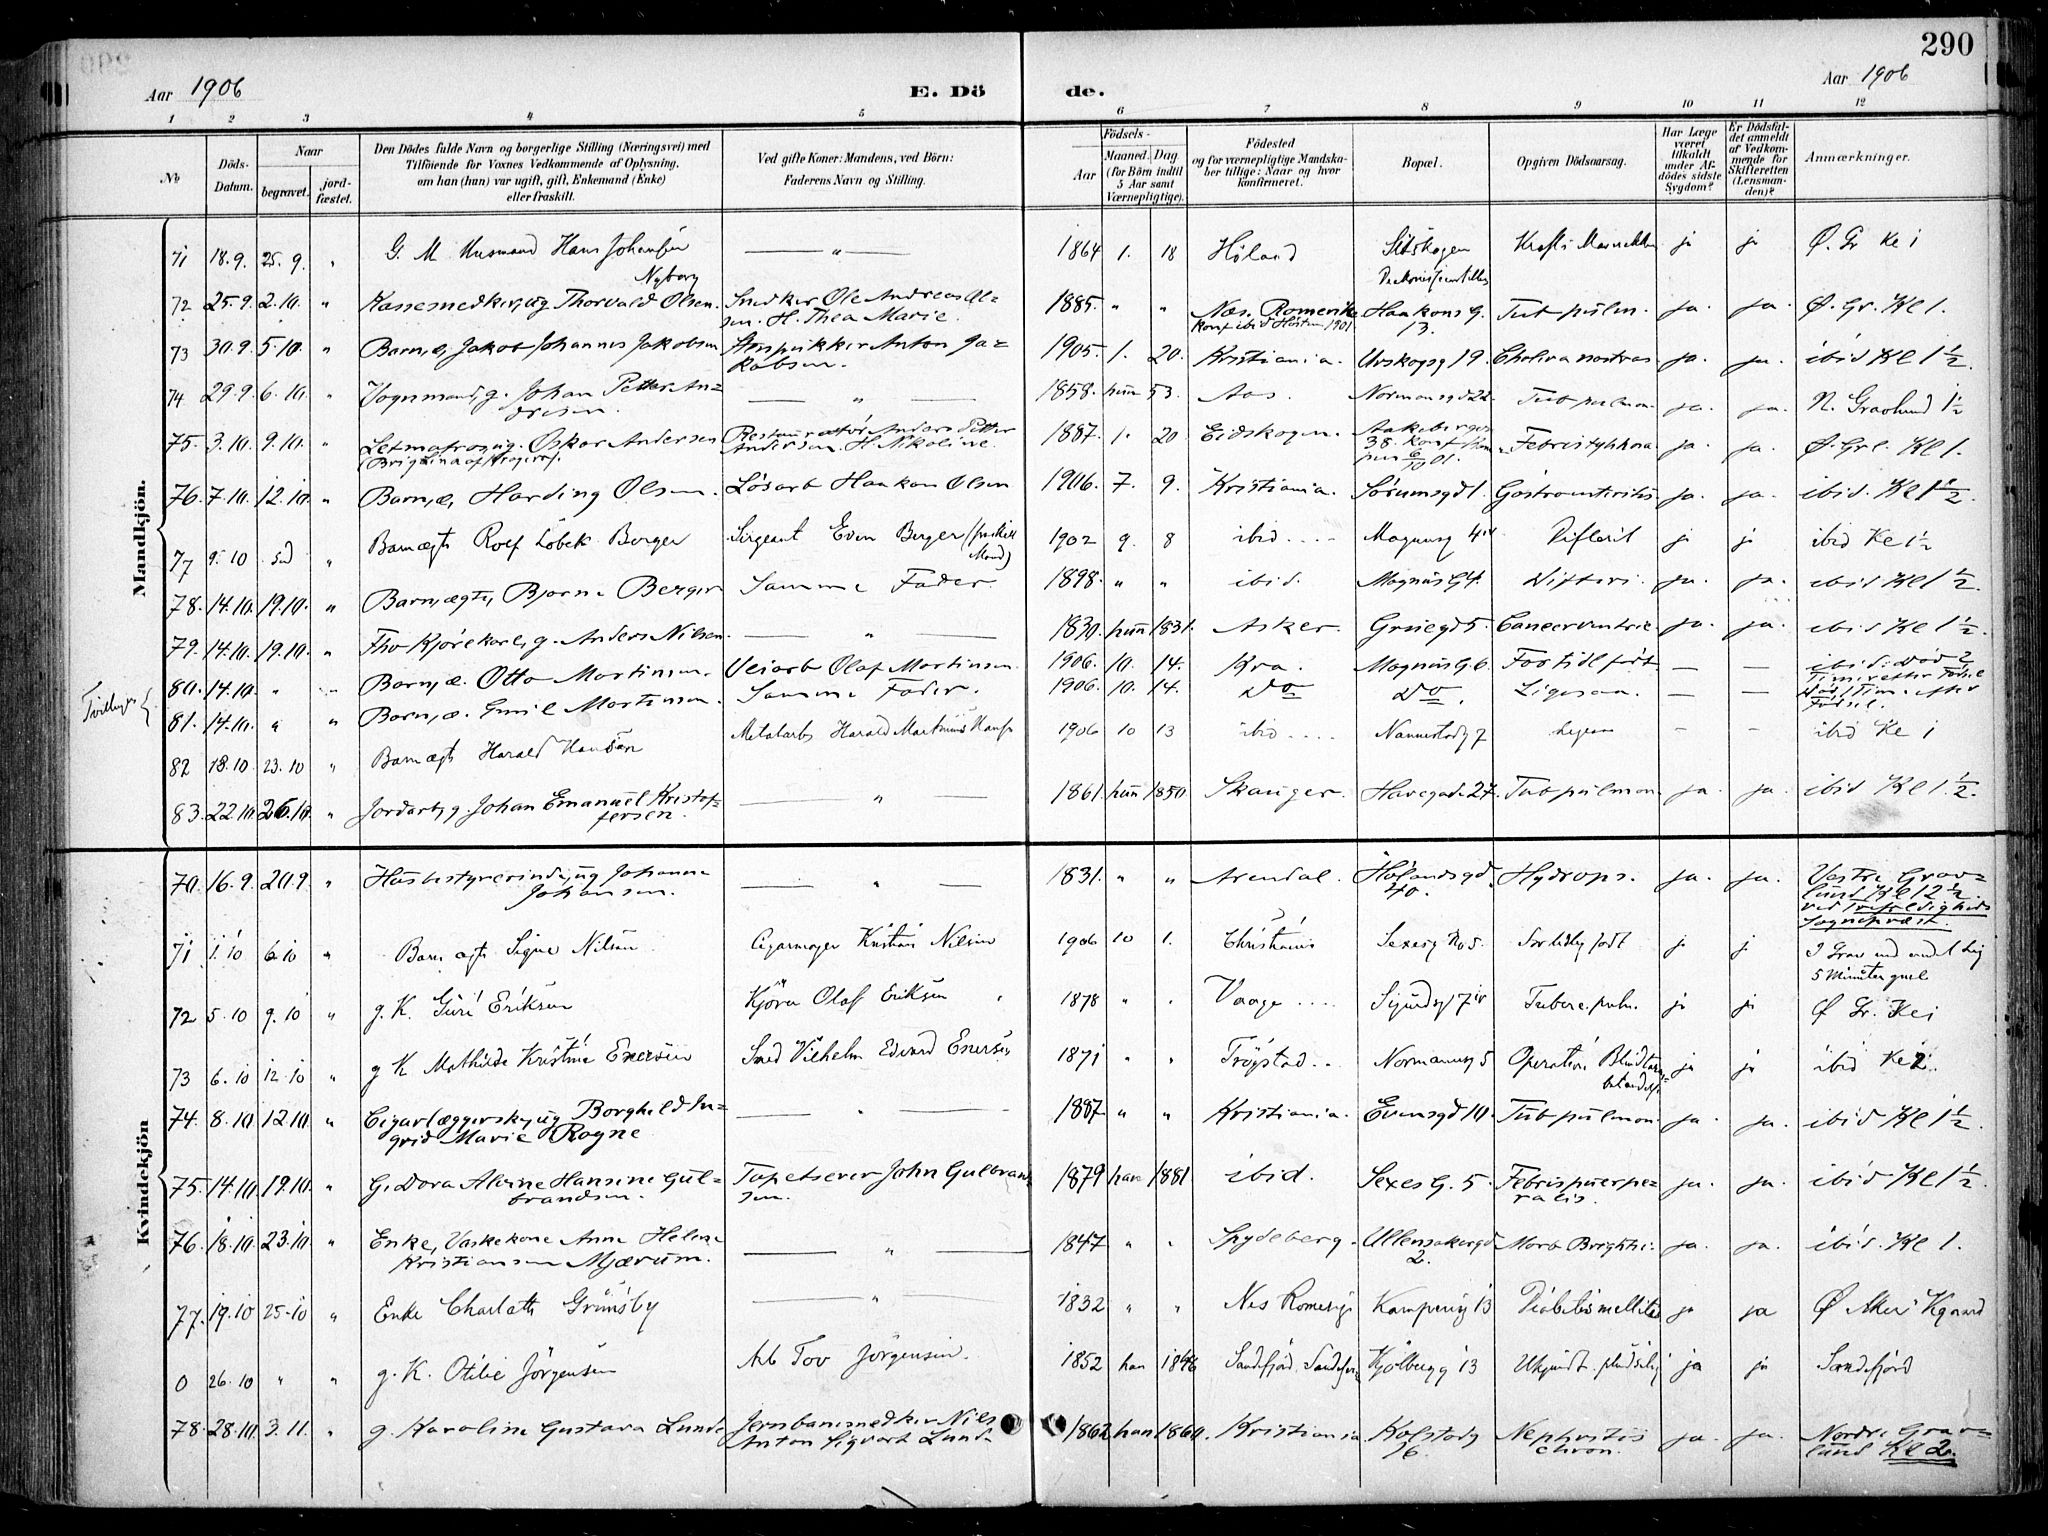 290
Aar 1906
E. Dö
de.
Aar 1906
1 2 3 4 5 6 7 8 9 10 11 12
No
Döds-Datum.
Naar
begravet.
jord-fæstet.
Den Dödes fulde Navn og borgerlige Stilling (Næringsvei) med
Tilföiende for Voxnes Vedkommende af Oplysning,
om han (hun) var ugift, gift, Enkemand (Enke)
eller fraskilt.
Ved gifte Koner: Mandens, ved Börn:
Faderens Navn og Stilling.
Födsels-
Aar
Maaned. Dag
(for Börn indtil
5 Aar samt
Værnepligtige).
Födested
og for værnepligtige Mandska-
ber tillige: Naar og hvor
konfirmeret.
Bopæl.
Opgiven Dödsaarsag.
Har Læge
været
tilkaldt
under Af-
dödes sidste
Sygdom?
Er Dödsfal-
det anmeldt
af Vedkom-
mende for
Skifteretten
(Lensman-
den)?
Anmærkninger.
Mandkjön.
71 18.9. 25.9. " G. M. Husmand Hans Johansen — " — 1864 1. 18 Höland ja ja Ø. Gr Kl 1
Nyborg
72 25.9. 2.10. " Kassesnedker, ug Thorvald Olsen. Snedker Ole Andreas Ol- 1885. " " Næs. Romerike Haakons G. Tub pulm. ja. ja. Ø. Gr. Kl 1.
sen. H. Thea Marie. konf ibid Høsten 1901 13.
73 30.9. 5.10. " Barn, æ, Jakob Johannes Jakobsen Stenpukker Anton Ja- 1905. 1. 20. Kristiania. Urskogsg 19. Cholera nostras ja. ja. ibid Kl 1 1/2.
kobsen.
74 29.9. 6.10. " Vognmand g. Johan Petter An- — " — 1858. hun 53. Aas. Normansgd 22 Tub pulmon. ja. ja. N. Gravlund 1 1/2
dresen.
75. 3.10. 9.10. " Letmatros, ug. Oskar Andersen Restauratør Anders Petter 1887. 1. 20. Eidskogen. Aakebergv. Febris typhoa ja. ja. Ø. Grl. Kl 1.
Andersen. H. Nikoline. 38. konf
76. 7.10. 12.10. " Barn, æ, Harding Olsen. Løsarb Haakon Olsen 1906. 7. 9. Kristiania. Sørumsgd 1. Gastroenteritis. ja. ja. ibid. Kl 1 1/2.
77 9.10 " Barn ægte Rolf Löbek Berger Sergeant Even Berger (fraskilt 1902 9. 8 ibid. .... Magnusg 4 Difterit ja ja ibid Kl 1 1/2
Mand)
78. 14.10. 19.10. " Barn, ægte, Bjarne Berger Samme Fader. 1898. " " ibid. Magnus G 4. Difteri. ja. ja. ibid Kl 1 1/2.
79. 14.10. 19.10. " Fhv Kjørekarl, g. Anders Nilsen. — " — 1830. hun 1831. Asker. Grüegd 5. Cancer ventric. ja. ja. ibid Kl 1 1/2.
Tvillinger {
80. 14.10. " " Barn, æ. Otto Martinsen. Veiarb Olaf Martinsen. 1906. 10. 14. Kra. Magnus G. 6. For tidl født — — ibid. Død 2
Timer efter Fødsel
81. 14.10. " " Barn, æ. Emil Martinsen. Samme Fader. 1906. 10. 14. Do Do. Ligesaa. — — Død 1 Tim. efter
Fødsel.
82 18.10 23.10 " Barn ægte Harald Hansen Metalarb Harald Martinius Hansen 1906 10 13 ibid. .... Nannestadg 7 Ligesaa — — ibid Kl 1
83. 22.10. 26.10. " Jordarb, g. Johan Emanuel Kristof- — " — 1861. hun 1850. Skauger. Havegade 27. Tub pulmon. ja. ja. ibid Kl 1 1/2.
fersen.
Kvindekjön
70. 16.9. 20.9. " Husbestyrerinde, ug Johanne — " — 1831. " " Arendal. Hølandsgd Hydrops. ja. ja. Vestre Grav-
Johansen. 40. lund Kl 12 1/2
ved Trefoldigheds
Sogneprest.
71 1.10 6.10 " Barn ægte Signe Nilsen Cigarmager Kristian Nilsen 1906 10 1. Christiania Sexesg No 5. For tidlig født ja ja I Grav med andet Lig
5 Minuter gml
72 5.10 9.10 " g. K. Guri Eriksen Kjøra Olaf Eriksen 1878 " " Vaage .... Sigurdsg 17 Tuberc. pulm. ja ja Ø Gr. Kl 1
73 6.10 12.10 " g K Mathilde Kristine Enersen Smed Vilhelm Edvard Enersen 1871 " " Trögstad .. Normannsg 5 Operation Blindtarms- ja ja ibid Kl 2.
betændelse
74. 8.10. 12.10. " Cigarlæggerske, ug Borghild In- — " — 1887. " " Kristiania. Evensgd 10. Tub pulmon. ja. ja. ibid Kl 1 1/2.
grid Marie Rogne
75. 14.10. 19.10. " G. Dora Alvine Hansine Gul- Tapetserer John Gulbrand- 1879 han 1881. ibid. Sexes G. 5. Febris puerpe- ja. ja. ibid Kl 1 1/2.
brandsen. sen. ralis.
76. 18.10. 23.10. " Enke, Vaskekone Anne Helene — " — 1847 " " Spydeberg. Ullensakergd Morb Brightii. ja. ja. ibid. Kl 1.
Kristiansen Mjærum. 2.
77. 19.10 25.10 " Enke Charlotte Grönsby — " 1832 " " Nes Romerige Kampensg 13 Diabetes mellitus ja ja Ø Aker Kgaard
0 26.10 " " g. K. Otilie Jörgensen Arb Tov Jörgensen. 1852 han 1848 Sandefjord Kjölbergg 13 Ukjendt. pludselig ja ja Sandefjord
78. 28.10. 3.11. " g. Karoline Gustava Lunde Jernbanesnedker Nils 1862 han 1860. Kristiania Kolstadg Nephritis ja. ja. Nordre Grav-
Anton Sigvart Lunde 16. chron. lund Kl 2.